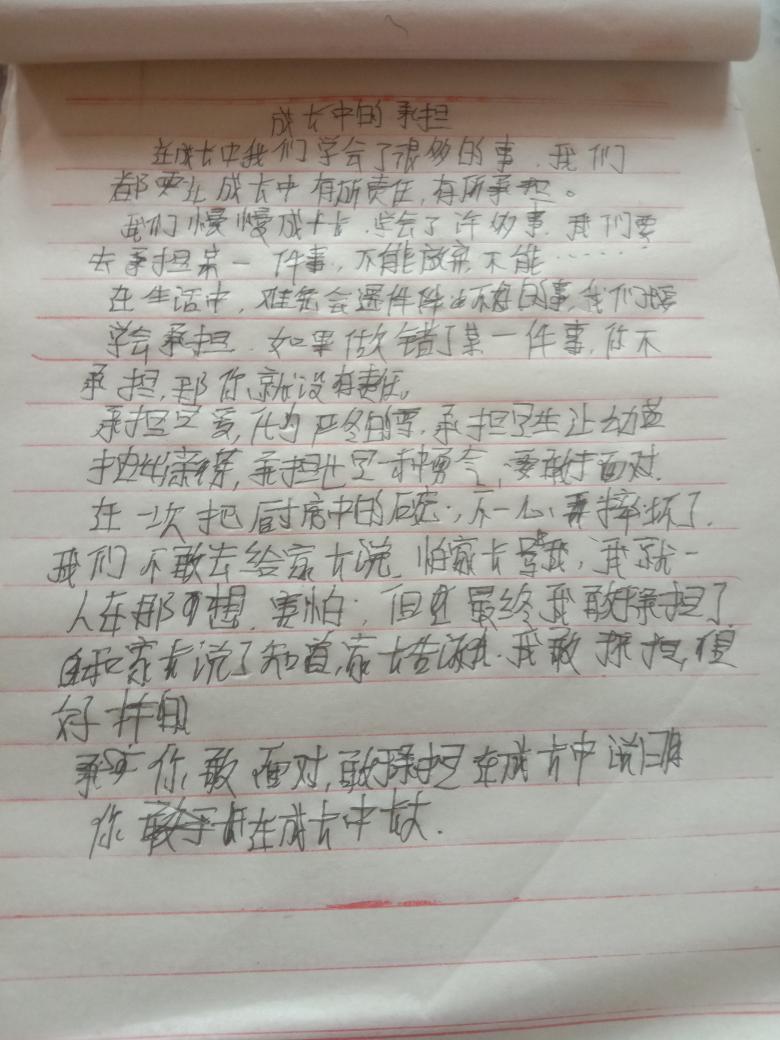 成长中的承担
在成长中我们学会了很多的事.我们
都要让成长中有所责任,有所承担。
我们慢慢成长,学会了许多事.我们要
去承担某一件事,不能放弃不能……
在生活中,难免会遇件件不好的事,我们要
学会承担.如果做错了某一件事,你不
承担,那你就没有责任。
承担是爱,化为严冬的雪,承担是让幼苗
承担也是一种勇气,要敢于面对.
在一次把厨房中的碗,不小心摔坏了.
我们不敢去给家长说.怕家长骂我,我就一
人在那想.害怕,但是最终我敢承担了
和家长说了知道,家长告诉我.我敢承担,很
好
你敢面对,敢承担在成长中说明
你在成长中长大.